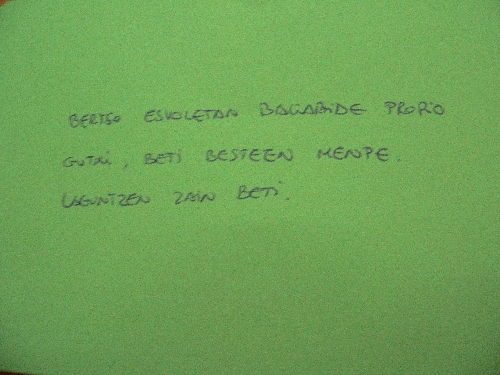 BERTSO ESKOLETAN BALIABIDE PROPIO
GUTXI, BETI BESTEEN MENPE.
LAGUNTZEN ZAIN BETI.